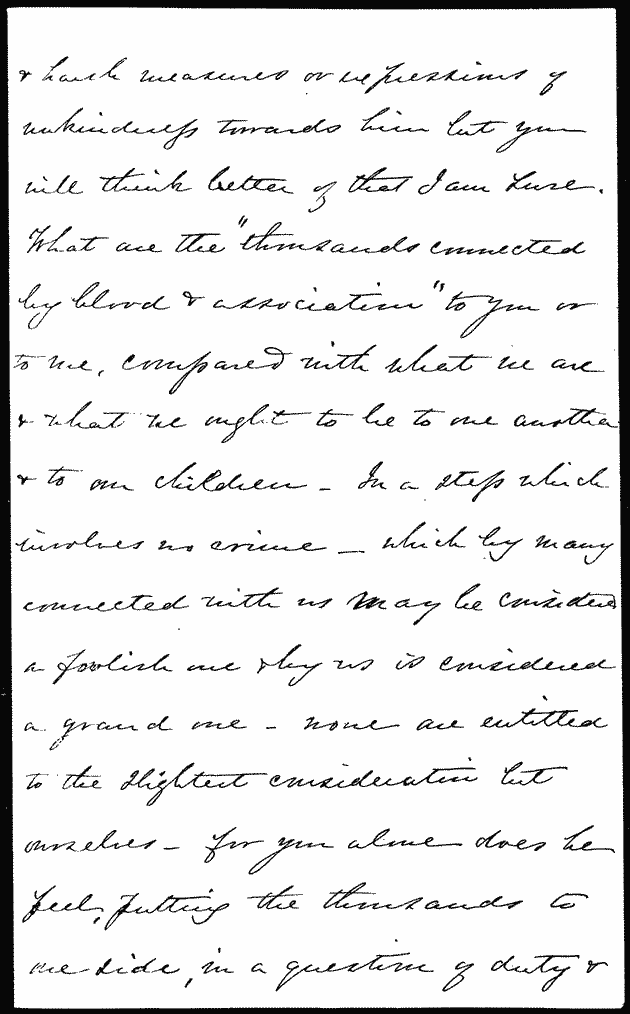 & harsh measures or expressions of
unkindness towards him but you
will think better of that I am sure.
What are the "thousands connected
by blood & association" to you or
to me, compared with what we are
& what we ought to be to one another
& to our children - In a step which
involves no crime - which by many
connected with us may be considered
a foolish one & by us is considered
a grand one - none are entitled
to the slightest consideration but
ourselves - for you alone does he
feel, putting the thousands to
one side, in a question of duty &